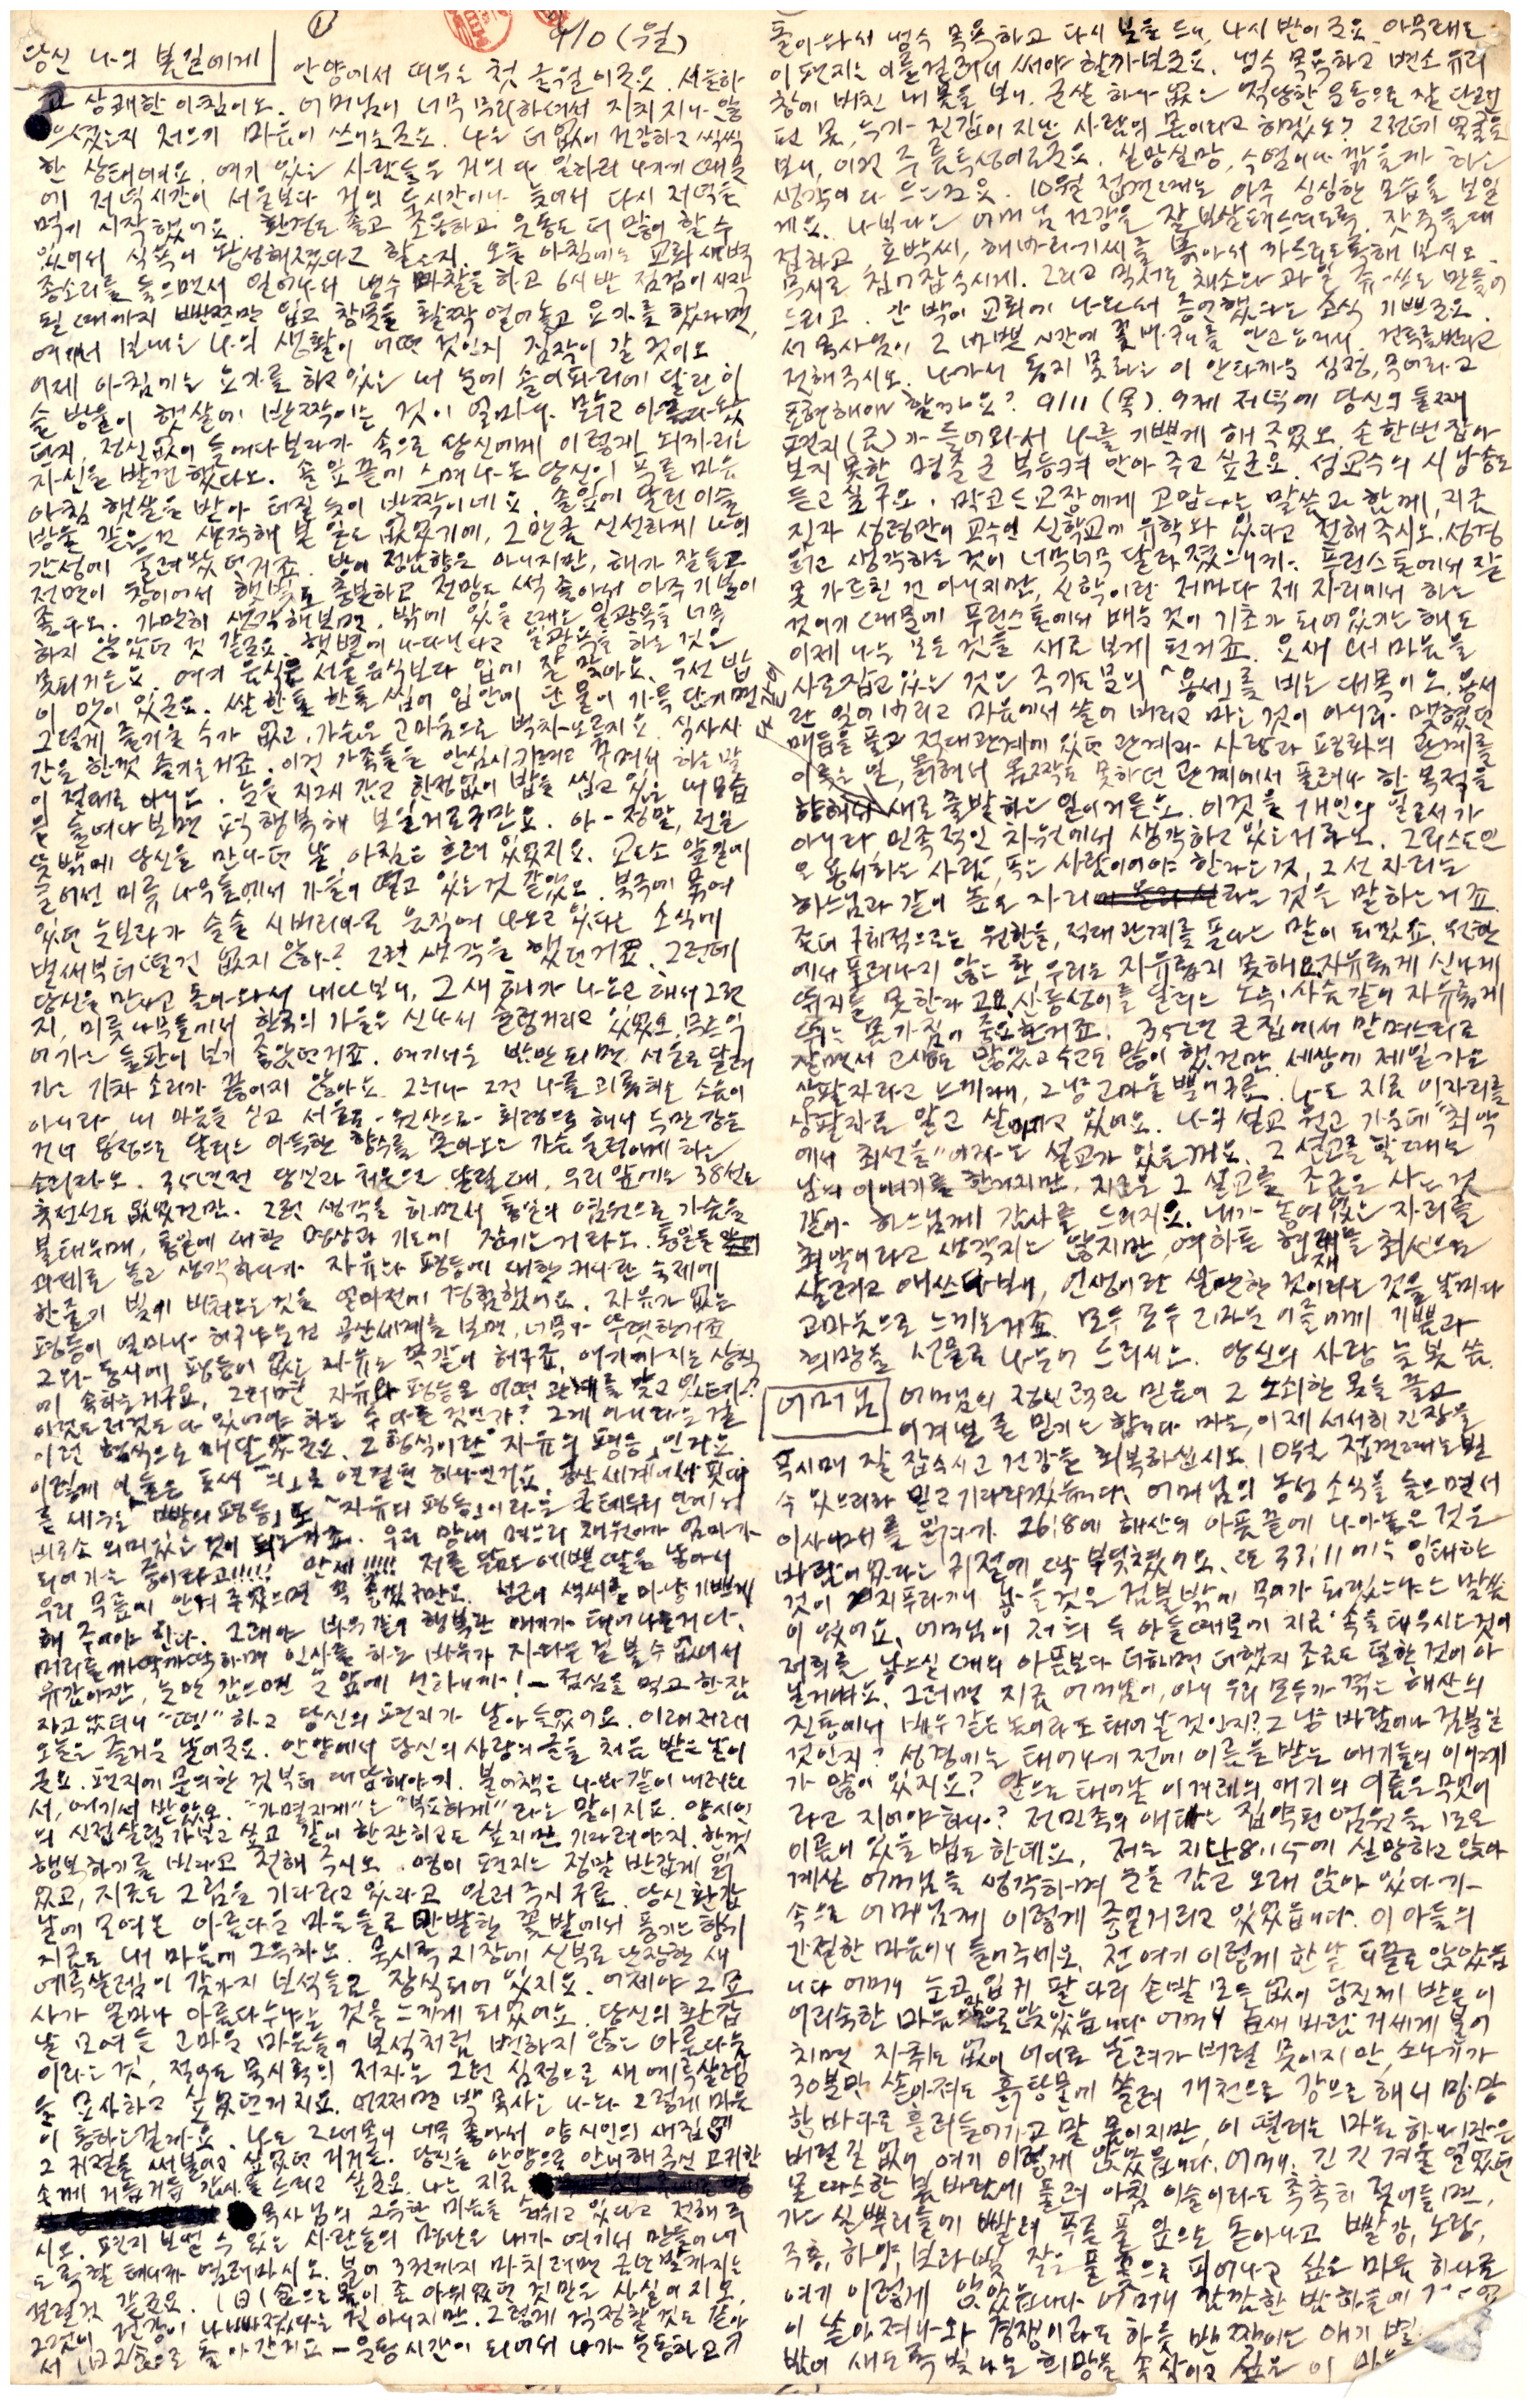 ① 9/10 (월)
당신 나의 봄길에게 안양에서 띄우는 첫 글월이군요. 서늘하
고 상쾌한 아침이오. 어머님이 너무 무리하셔서 지치시나 않
으셨는지 저으기 마음이 쓰이는군요. 나는 더없이 건강하고 씩씩
한 상태예요. 여기 있는 사람들은 거의 다 일하러 나가기 때문
에 저녁시간이 서울보다 거의 두시간이나 늦어서 다시 저녁을
먹기 시작했어요. 환경도 좋고 조용하고 운동도 더 많이 할 수
있어서 식욕이 왕성해졌다고 할는지. 오늘 아침에는 교회 새벽
종소리를 들으면서 일어나서 냉수마찰을 하고 6시반 점검이 시작
될 때까지 빤쯔만 입고 창문을 활짝 열어놓고 요가를 했다면,
여기서 보내는 나의 생활이 어떤 것인지 짐작이 갈 것이오
어제 아침에는 요가를 하고 있는 내 눈에 솔이파리에 달린 이
슬방울이 햇살에 반짝이는 것이 얼마나 맑고 아름다웠
던지, 정신없이 들여다보다가 속으로 당신에게 이렇게 되까리는
자신을 발견했다오. 솔잎 끝에 스며나온 당신의 푸른 마음
아침 햇살을 받아 터질 듯이 반짝이네요. 솔잎에 달린 이슬
방울 같은 건 생각해 본 일도 없었기에, 그만큼 신선하게 나의
감성에 울려왔던거죠. 방이 정남향은 아니지만, 해가 잘 들고
전면이 창이어서 햇빛도 충분하고 전망도 썩 좋아서 아주 기분이
좋다오. 가만히 생각해보면, 밖에 있을 때는 일광욕을 너무
하지 않았던 것 같군요. 햇볕에 나다닌다고 일광욕을 하는 것은
못되거든요. 여기 음식은 서울음식보다 입에 잘 맞아요. 우선 밥
이 맛이 있군요. 쌀 한톨 한톨 씹어 입안에 단물이 가득 단기면
그렇게 즐거울 수가 없고, 가슴은 고마움으로 벅차오르지요. 식사시
간을 한껏 즐기는거죠. 이건 가족들을 안심시키려고 꾸며서 하는 말
이 절대로 아니오. 눈을 지긋이 감고 한정없이 밥을 씹고 있는 내 모습
을 들여다보면 퍽 행복해 보일거로구만요. 아-정말, 전일
뜻밖에 당신을 만나던 날, 아침은 흐려 있었지요. 교도소 앞길에
늘어선 미류나무들에서 가을이 떨고 있는 것 같았오. 북극에 묶여
있던 눈보라가 슬슬 시베리아로 움직여 나오고 있다는 소식에
벌써부터 떨건 없지 않아? 그런 생각을 했던거죠. 그런데
당신을 만나고 돌아와서 내다보니, 그새 해가 나오고 해서 그런
지, 미륫나무들에서 한국의 가을은 신나서 출렁거리고 있었오. 무르익
어가는 들판이 보기 좋았던거죠. 여기서는 밤만 되면 서울로 달려
가는 기차 소리가 끊이지 않아요. 그러나 그건 나를 괴롭히는 소음이
아니라 내 마음을 싣고 서울로-원산으로-회령으로 해서 두만강을
건너 용정으로 달리는 아득한 향수를 몰아오는 가슴 울렁이게 하는
소리라오. 35년전 당신과 처음으로 달릴 때, 우리 앞에는 38선도
휴전선도 없었건만. 그런 생각을 하면서 통일의 염원으로 가슴을
불태우며, 통일에 대한 명상과 기도에 잠기는거라오. 통일을
과제로 놓고 생각하다가 자유와 평등에 대한 커다란 숙제에
한줄기 빛이 비쳐오는 것을 얼마전에 경험했어요. 자유가 없는
평등이 얼마나 허구라는건 공산세계를 보면, 너무나 뚜렷한거죠
그와 동시에 평등이 없는 자유도 똑같이 허구죠. 여기까지는 상식
에 속하는거구요, 그러면 자유와 평등은 어떤 관계를 맺고 있는가?
이것도 저것도 다 있어야 하는 두 다른 것인가? 그게 아니라는 걸
이런 형식으로 깨달았군요. 그 형식이란 "자유의 평등"인거요
이렇게 이 둘은 토씨 "의"로 연결된 하나인거요. 공산세계에서 핏대
를 세우는 "빵의 평등"도 "자유의 평등"이라는 큰 테두리 안에서
비로소 의미있는 것이 되는거죠. 우리 망내 며느리 채원이가 엄마가
되어가는 중이라고!!!!! 만세!!!!! 저를 닮은 예쁜 딸을 낳아서
우리 무릎에 안겨 주었으면 꼭 좋겠구만요. 성근이 색씨를 마냥 기쁘게
해 주어야 한다. 그래야 바우같이 행복한 애기가 태어나는거다.
머리를 까딱까딱하며 인사를 하는 바우가 자라는 걸 볼 수 없어서
유감이지만, 눈만 감으면 눈앞에 선하니까!-점심을 먹고 한잠
자고 났더니 "떵!" 하고 당신의 편지가 날아 들었어요. 이래저래
오늘은 즐거운 날이군요. 안양에서 당신의 사랑의 글을 처음 받는 날이
군요. 편지에 문의한 것부터 대답해야지. 불어책은 나와 같이 내려와
서, 여기서 받았오. "가멸지게"는 "부요하게"라는 말이지요. 양시인
의 신접살림 가보고 싶고 같이 한잔하고도 싶지만 기다려야지. 한껏
행복하기를 빈다고 전해 주시오. 영이 편지는 정말 반갑게 읽
었고, 지금도 그림을 기다리고 있다고 일러 주시구료. 당신 환갑
날에 모여온 아름다운 마음들로 만발한 꽃밭에서 풍기는 향기
지금도 내 마음에 그윽하오. 묵시록 21장에 신부로 단장한 새
예루살렘이 갖가지 보석들로 장식되어 있지요. 어제야 그 묘
사가 얼마나 아름다우냐는 것을 느끼게 되었어요. 당신의 환갑
날 모여든 고마운 마음들이 보석처럼 변하지 않는 아름다움
이라는 것, 적어도 묵시록의 저자는 그런 심정으로 새 예루살렘
을 묘사하고 싶었던거지요. 어쩌면 박 목사는 나와 그렇게 마음
이 통하는걸까요. 나도 그 대목이 너무 좋아서 양시인의 새집에
그 귀절을 써 붙이고 싶었던거거든. 당신을 안양으로 안내해 주신 고귀한
손께 거듭거듭 감사를 드리고 싶군요. 나는 지금
목사님의 그윽한 믿음을 숨쉬고 있다고 전해 주
시오. 편지 보낼 수 있는 사람들의 명단은 내가 여기서 만들어 내
도록 할 테니까 염려마시오. 불어 3권까지 마치려면 금년말까지는
걸릴 것 같군요. 1日1食으로 몸이 좀 야위었던 것만은 사실이지요,
그것이 건강이 나빠졌다는 건 아니지만. 그렇게 걱정할 것도 같아
서 1日2食으로 돌아간거요-운동시간이 되어서 나가 운동하고
돌아와서 냉수 목욕하고 다시 붓을 드니, 다시 밤이군요. 아무래도
이 편지는 이틀 걸려서 써야 할까보군요. 냉수 목욕하고 변소 유리
창에 비친 내 몸을 보니, 군살 하나 없는 적당한 운동으로 잘 단련
된 몸, 누가 진갑이 지난 사람의 몸이라고 하겠오? 그런데 얼굴을
보니, 이건 주름투성이로군요. 실망실망, 수염이나 깎을까 하는
생각이 다 드는군요. 10월 접견때는 아주 싱싱한 모습을 보일
게요. 나보다는 어머님 건강을 잘 보살펴드리도록. 잣죽을 대
접하고, 호박씨, 해바라기씨를 볶아서 까드리도록 해 보시오.
목사로 침이 잡수시게. 그리고 믹서로 채소와 과일 쥬-쓰도 만들어
드리고. 간 박이 교회에 나와서 증언했다는 소식 기쁘군요.
서 목사님이 그 바쁜 시간에 꽃바구니를 안고 오셨어. 건투를 빈다고
전해 주시오. 나가서 돕지 못하는 이 안타까운 심정, 무어라고
표현해야 할까요? 9/11 (목). 어제 저녁에 당신의 둘째
편지(글)가 들어와서 나를 기쁘게 해 주었오. 손 한번 잡아
보지 못한 명술군 부둥켜 안아 주고 싶군요. 성교수의 시 낭송도
듣고 싶구요. 막코드 교장에게 고맙다는 말씀과 함께, 지금
진짜 성령만이 교수인 신학교에 유학와 있다고 전해주시오. 성경
읽고 생각하는 것이 너무너무 달라졌으니까. 프린스톤에서 잘
못 가르친 건 아니지만, 신학이란 저마다 제 자리에서 하는
것이기 때문에 푸린스톤에서 배운 것이 기초가 되어 있기는 해도
이제 나는 모든 것을 새로 보게 된거죠. 요새 내 마음을
사로잡고 있는 것은 주기도문의 "용서"를 비는 대목이오. 용서
란 잊어버리고 마음에서 쓸어 버리고 마는 것이 아니라, 맺혔던
매듭을 풀고 적대관계에 있던 관계가 사랑과 평화의 관계를
이루는 일, 묶여서 옴짝도 못하던 관계에서 풀려나 한 목적을
향해서 새로 출발하는 일이거든요. 이것을 개인의 일로서가
아니라, 민족적인 차원에서 생각하고 있는거라오. 그리스도인
은 용서하는 사람, 푸는 사람이어야 한다는 것, 그 선 자리는
하느님과 같이 높은 자리라는 것을 말하는거죠.
좀더 구체적으로는 원한을, 적대관계를 푼다는 말이 되겠오. 원한
에서 풀려나지 않는 한 우리는 자유롭지 못해요. 자유롭게 신나게
뛰지를 못한다고요. 산등성이를 달리는 노루·사슴같이 자유롭게
뛰는 몸가짐이 중요한거죠. 35년 큰집에서 맏며느리로
살면서 고생도 많았고 수고도 많이 했건만, 세상에 제일 가는
상팔자라고 느끼며, 그냥 고마울 뿐이구료. 나도 지금 이자리를
상팔자로 알고 살아가고 있어요. 나의 설교 원고 가운데 "최악
에서 최선을"이라는 설교가 있을꺼요. 그 설교를 할 때는
남의 이야기를 한거지만, 지금은 그 설교를 조금은 사는 것
같아 하느님께 감사를 드리지요. 내가 놓여 있는 자리를
최악이라고 생각지는 않지만, 여하튼 현재를 최선으로
살려고 애쓰다 보니, 인생이란 살만한 것이라는 것을 날마다
고마움으로 느끼는거죠. 모두 모두 그리운 이들에게 기쁨과
희망을 선물로 나누어 드리시오. 당신의 사랑 늦봄 씀.
어머님 어머님의 정신력과 믿음이 그 노쇠한 몸을 끌고
이겨낼 줄 믿기는 합니다 마는, 이제 서서히 긴장을
푸시며 잘 잡수시고 건강을 회복하십시오. 10월 접견때는 뵐
수 있으리라 믿고 기다리겠습니다. 어머님의 농성 소식을 들으면서
이사야서를 읽다가 26:8에 해산의 아픔끝에 나아놓은 것은
바람이었다는 귀절에 딱 부딪쳤어요. 또 33:11에는 임태한
것이 지푸라기니 낳을 것은 검불밖에 무어가 되겠느냐는 말씀
이 있어요. 어머님이 저희 두 아들때문에 지금 속을 태우시는 것이
저희를 낳으실 때의 아픔보다 더하면 더했지 조금도 덜한 것이 아
닐거예요. 그러면 지금 어머님이, 아니 우리 모두가 겪는 해산의
진통에서 배우 같은 놈이라도 태어날 것인지? 그냥 바람이나 검불일
것인지? 성경에는 태어나기 전에 이름을 받는 애기들의 이야기
가 많이 있지요? 앞으로 태어날 이 겨레의 애기의 이름은 무엇이
라고 지어야 하나? 전민족의 애타는 집약된 염원을 모은
이름이 있을 법도 한데요, 저는 지난 8.15에 실망하고 앉아
계신 어머님을 생각하며 눈을 감고 오래 앉아 있다가
속으로 어머님께 이렇게 중얼거리고 있었읍니다. 이 아들의
간절한 마음이니 들어주세요. 전 여기 이렇게 한낱 티끌로 앉았읍
니다 어머니 눈 코 입 귀 팔다리 손발 모든 없이 당신께 받은 이
어리숙한 마음만으로 앉았읍니다 어머니 높새 바람 거세게 불어
치면 자취도 없이 어디로 날려가 버릴 몸이지만, 소나기가
30분만 쏟아져도 흙탕물에 쓸려 개천으로 강으로 해서 망망
한 바다로 흘러들어가고 말 몸이지만, 이 떨리는 마음 하나만은
버릴 길 없어 여기 이렇게 앉았읍니다. 어머니. 긴긴 겨울 얼었던
몸 따스한 봄바람에 풀려 아침 이슬이라도 촉촉히 젖어들면,
가는 실뿌리들에 빨려 푸른 풀잎으로 돋아나고 빨강, 노랑,
주홍, 하양, 보라빛 작은 풀꽃으로 피어나고 싶은 마음 하나로
여기 이렇게 앉았읍니다 어머니 캄캄한 밤하늘에
이 쏟아져나와 경쟁이라도 하듯 반짝이는 애기 별
밤이 새도록 빛나는 희망을 속삭이고 싶은 이 마음